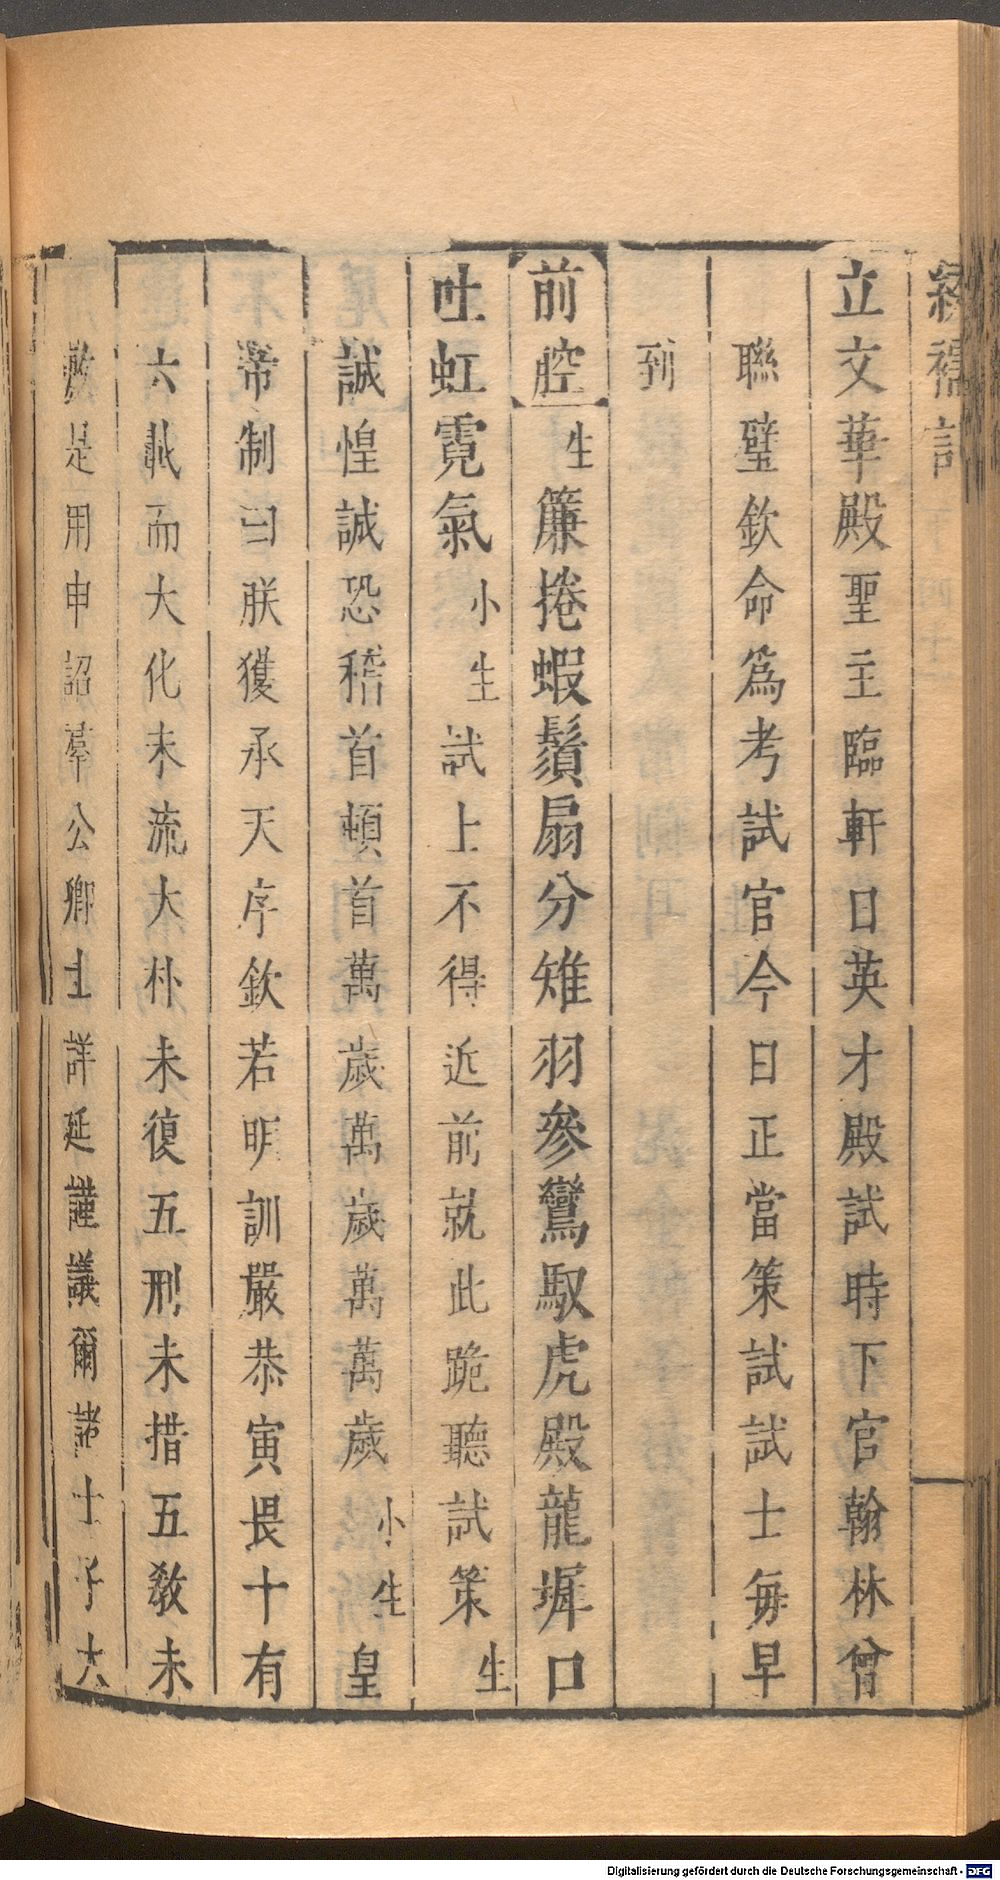 立文華殿聖主臨軒日英才殿試時下官翰林曾
聯璧欽命爲考試官今日正當策試試士每早
到
前腔 生 簾捲蝦鬚扇分雉羽參鸞馭虎殿龍墀口
吐虹霓氣 小生 試上不得近前就此跪聽試策 生
誠惶誠恐稽首頓首萬歲萬歲萬萬歲 小生 皇
帝制曰朕獲承天序欽若明訓嚴恭寅畏十有
六載而大化未流大朴未復五刑未措五敎未
敷是用申詔羣公卿士詳延讜議爾諸士子大
Digitalisierung gefördert durch die Deutsche Forschungsgemeinschaft - DFG